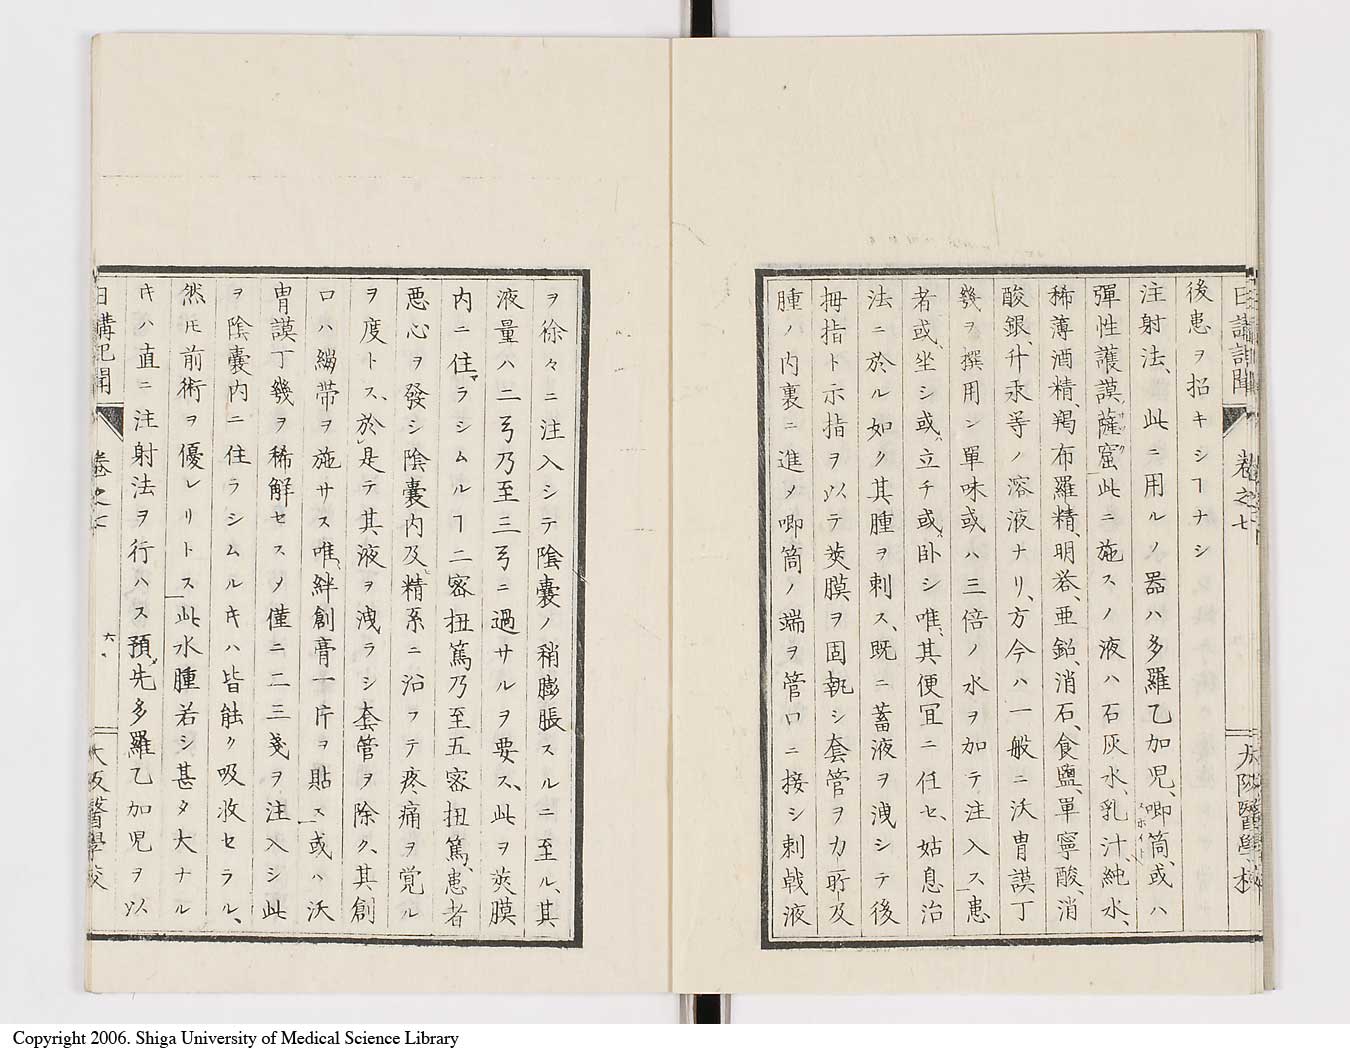 日講記聞
卷之七
大阪醫學校
後患ヲ招キシヿナシ
注射法、此ニ用ルノ器ハ多羅乙加児、喞筒、或ハ
彈性護謨、薩窟此ニ施スノ液ハ石灰水、乳汁、純水、
稀薄酒精、羯布羅精、明礬、亜鉛、消石、食鹽、單寧酸、消
酸銀、升汞等ノ溶液ナリ、方今ハ一般ニ沃胃謨丁
幾ヲ撰用シ單味或ハ三倍ノ水ヲ加テ注入ス患
者或、坐シ或、立チ或、臥シ唯、其便冝ニ任セ、姑息治
法ニ於ル如ク其腫ヲ刺ス、既ニ蓄液ヲ洩シテ後
拇指ト示指ヲ以テ莢膜ヲ固執シ套管ヲ力所及
腫ノ内裏ニ進メ喞筒ノ端ヲ管口ニ接シ刺戟液
ヲ徐々ニ注入シテ陰嚢ノ稍膨脹スルニ至ル、其
液量ハ二弓乃至三弓ニ過サルヲ要ス、此ヲ莢膜
内ニ住ラシムルヿ二密扭篤乃至五密扭篤、患者
悪心ヲ發シ陰嚢内及精系ニ沿フテ疼痛ヲ覚ル
ヲ度トス、於是テ其液ヲ洩ラシ套管ヲ除ク、其創
口ハ繃帯ヲ施サス唯、絆創膏一片ヲ貼ス或ハ沃
胃謨丁幾ヲ稀解セスメ僅ニ二三戔ヲ注入シ此
ヲ陰嚢内ニ住ラシムルキハ皆能ク吸收セラル、
然𪜈前術ヲ優レリトス此水腫若シ甚タ大ナル
キハ直ニ注射法ヲ行ハス預先多羅乙加児ヲ以
日講記聞
卷之七
六
大阪醫學校
Copyright 2006. Shiga University of Medical Science Library